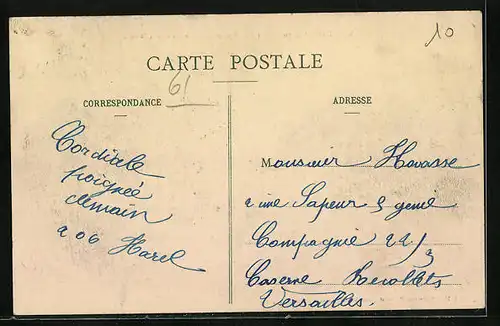 CARTE POSTALE
10
61
CORRESPONDANCE
ADRESSE
Cordiale
poignée
demain
Harel
Monsieur Havasse
Sapeur 5 genie
Compagnie 22/3
Caserne Recollets
Versailles.